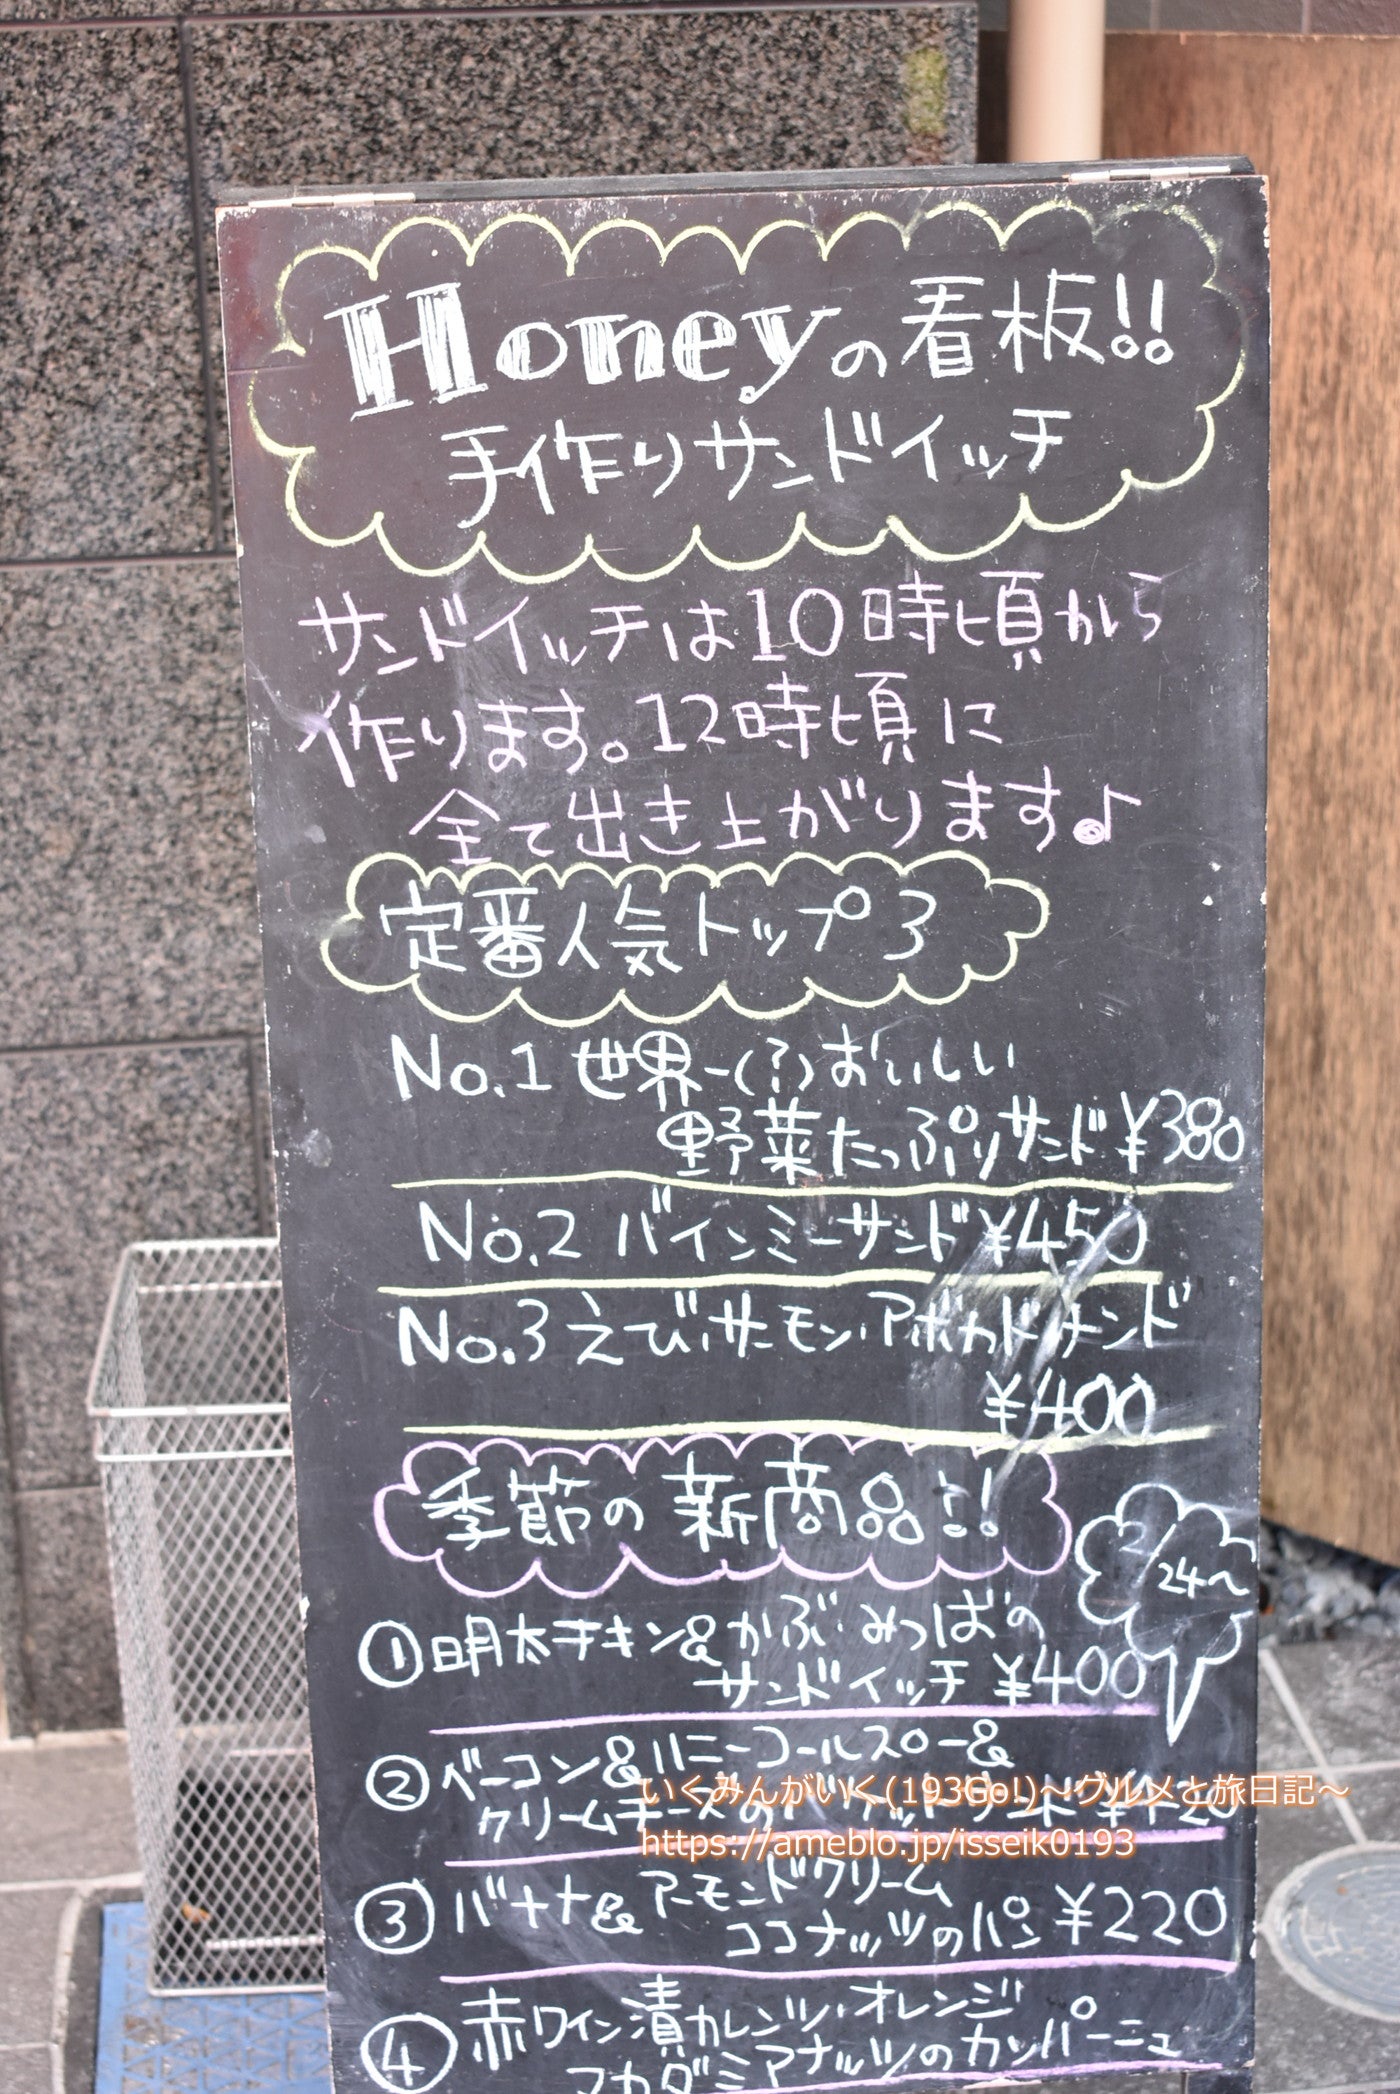 Honeyの看板!!
手作りサンドイッチ
サンドイッチは10時頃から
作ります。12時頃に
全て出き上がります♪
定番人気トップ3
No.1 世界一(?)おいしい
野菜たっぷりサンド ¥380
No.2 バインミーサンド ¥450
No.3 えび・サーモン・アボカドサンド
¥400
季節の新商品!!
2/24〜
①明太チキン&かぶ・みつばの
サンドイッチ ¥400
②ベーコン&ハニーコールスロー&
クリームチーズの
いくみんがいく(193Go!)〜グルメと旅日記〜
https://ameblo.jp/isseik0193
③バナナ&アーモンドクリーム
ココナッツのパン ¥220
④赤ワイン漬カレンツ・オレンジ
マカダミアナッツのカンパーニュ